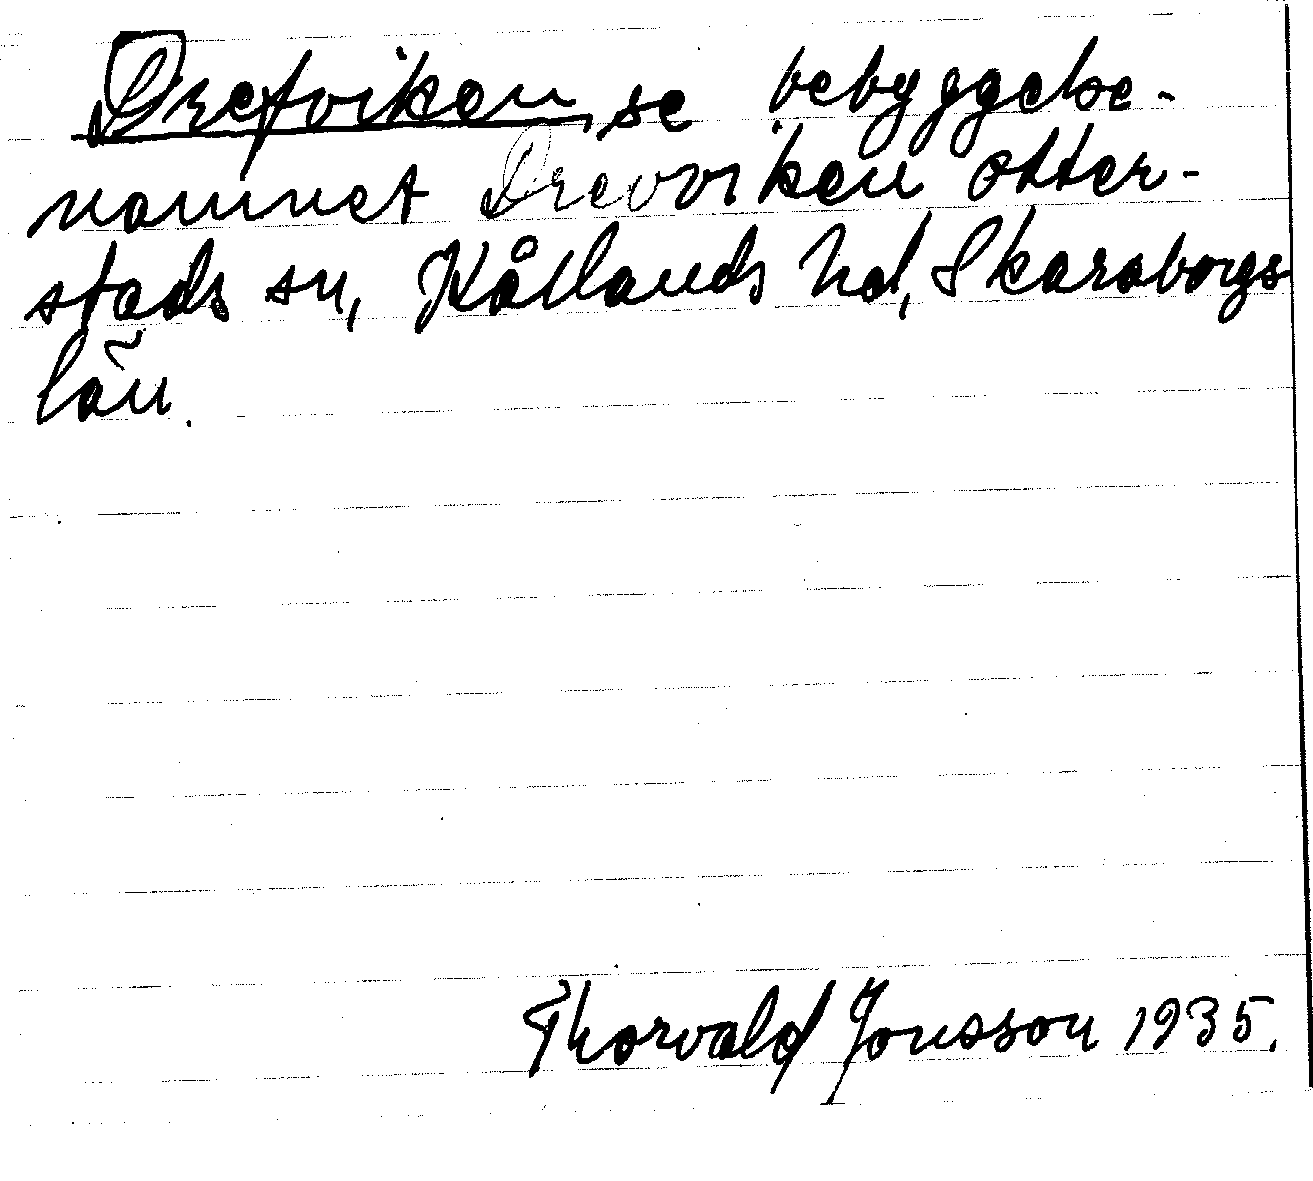 Drefviken, se bebyggelse-
namnet Drevviken Otter-
stads sn, Kållands hd, Skaraborgs
län.
Thorvald Jonsson 1935.